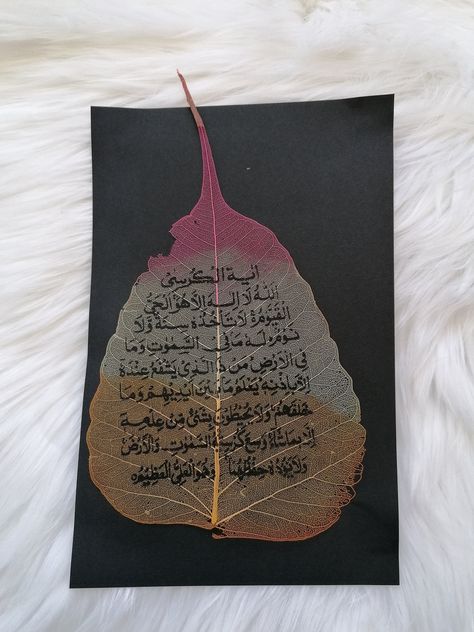 اية الكرسي
الله لا إله إلا هو الحي
القيوم لا تأخذه سنة ولا
نوم له ما في السموت وما
في الأرض من ذا الذي يشفع عنده
إلا باذنه يعلم ما بين أيديهم وما
خلفهم ولا يحيطون بشئ من علمه
إلا بما شاء وسع كرسيه السموت والأرض
ولا يؤده حفظهما وهو العلي العظيم